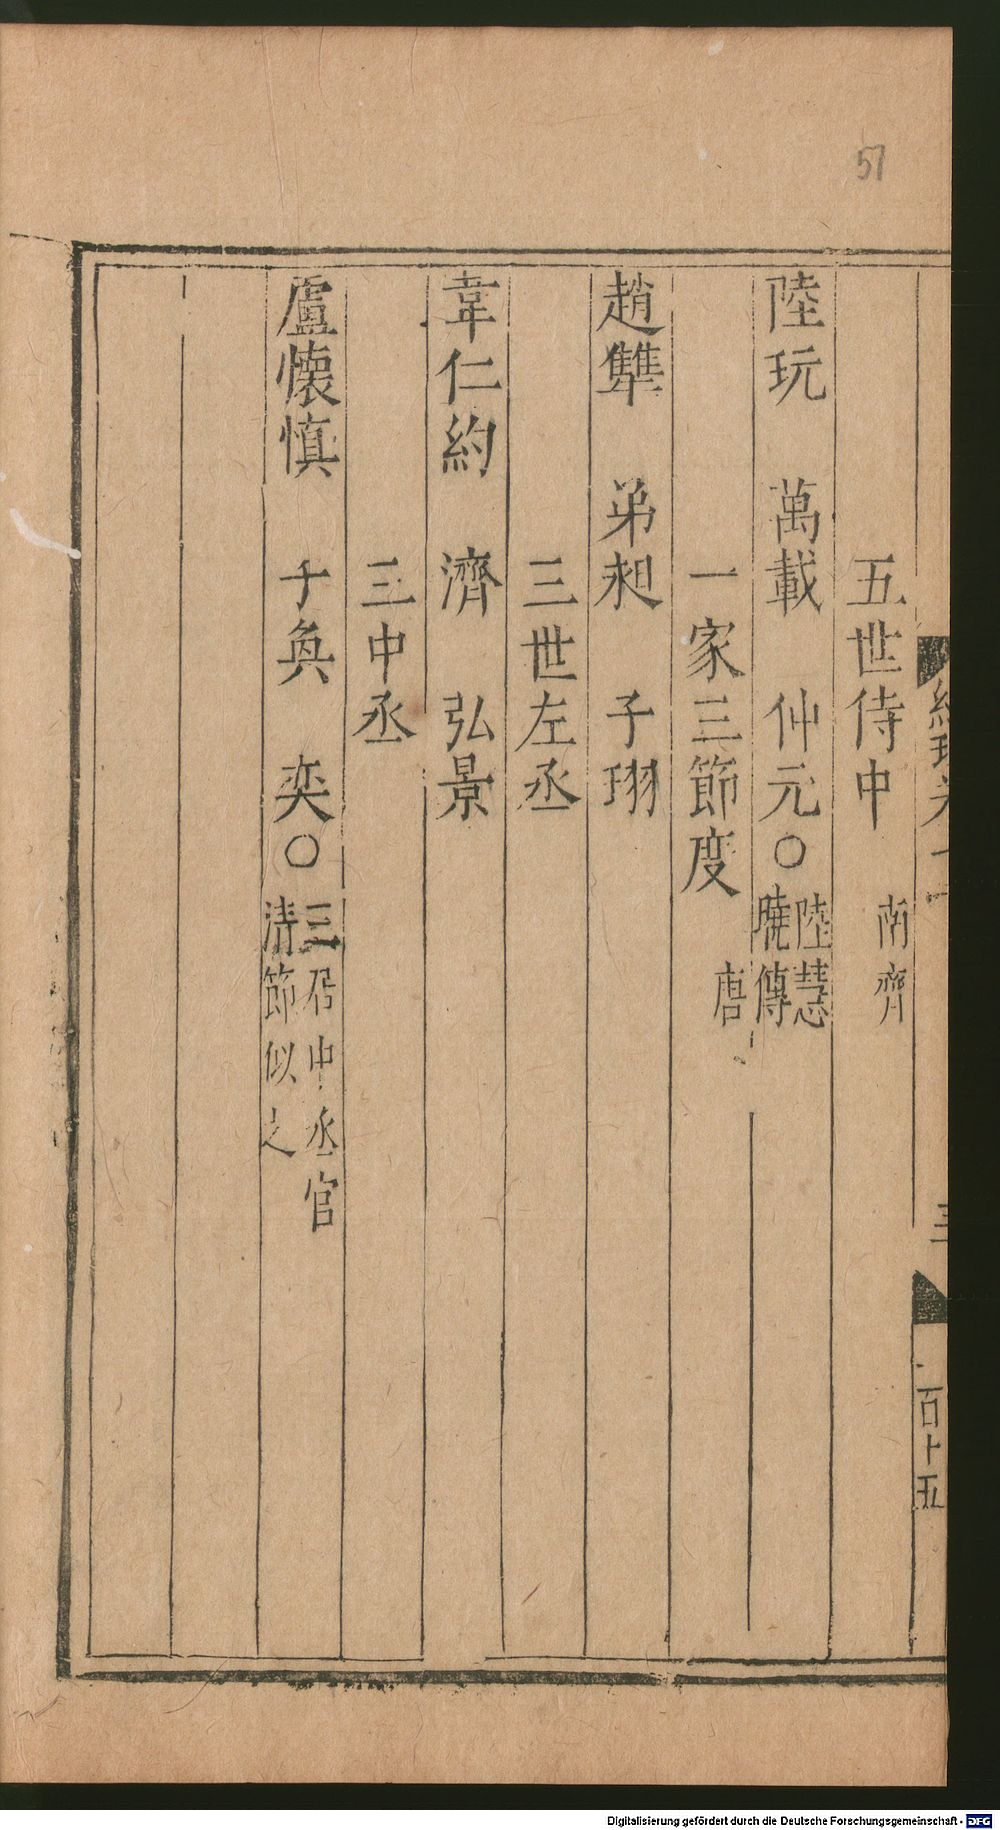 51
五世侍中　南齊
陸玩　萬載　仲元○陸慧
曉傳
一家三節度　唐
趙犨　弟昶　子珝
三世左丞
韋仁約　濟　弘景
三中丞
盧懷慎　子奐　奕○三居中丞官
清節似之
三
百十五
Digitalisierung gefördert durch die Deutsche Forschungsgemeinschaft - DFG